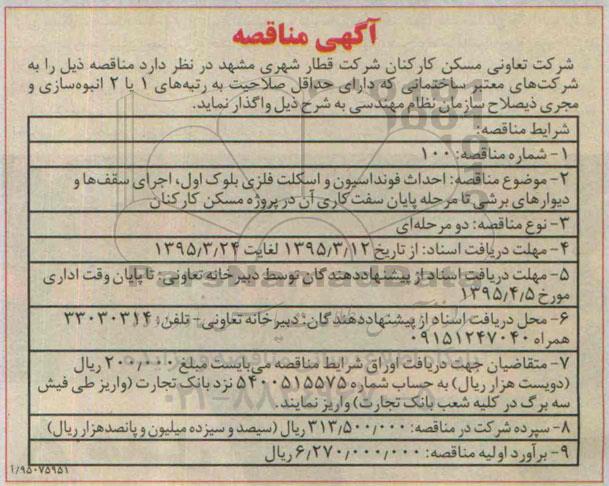 آگهی مناقصه
شرکت تعاونی مسکن کارکنان شرکت قطار شهری مشهد در نظر دارد مناقصه ذیل را به
شرکت‌های معتبر ساختمانی که دارای حداقل صلاحیت به رتبه‌های ۱ یا ۲ انبوه‌سازی و
مجری ذیصلاح سازمان نظام مهندسی به شرح ذیل واگذار نماید.
شرایط مناقصه:
۱- شماره مناقصه: ۱۰۰
۲- موضوع مناقصه: احداث فونداسیون و اسکلت فلزی بلوک اول، اجرای سقف‌ها و
دیوارهای برشی تا مرحله پایان سفت‌کاری آن در پروژه مسکن کارکنان
۳- نوع مناقصه: دو مرحله‌ای
۴- مهلت دریافت اسناد: از تاریخ ۱۳۹۵/۳/۱۲ لغایت ۱۳۹۵/۳/۲۴
۵- مهلت دریافت اسناد از پیشنهاددهندگان توسط دبیرخانه تعاونی: تا پایان وقت اداری
مورخ ۱۳۹۵/۴/۵
۶- محل دریافت اسناد از پیشنهاددهندگان: دبیرخانه تعاونی- تلفن: ۳۳۰۳۰۳۱۴ و
همراه ۰۹۱۵۱۲۴۷۰۴۰
۷- متقاضیان جهت دریافت اوراق شرایط مناقصه می‌بایست مبلغ ۲۰۰/۰۰۰ ریال
(دویست هزار ریال) به حساب شماره ۵۴۰۰۵۱۵۵۷۵ نزد بانک تجارت (واریز طی فیش
سه برگ در کلیه شعب بانک تجارت) واریز نمایند.
۸- سپرده شرکت در مناقصه: ۳۱۳/۵۰۰/۰۰۰ ریال (سیصد و سیزده میلیون و پانصدهزار ریال)
۹- برآورد اولیه مناقصه: ۶/۲۷۰/۰۰۰/۰۰۰ ریال
۱/۹۵۰۷۵۹۵۱